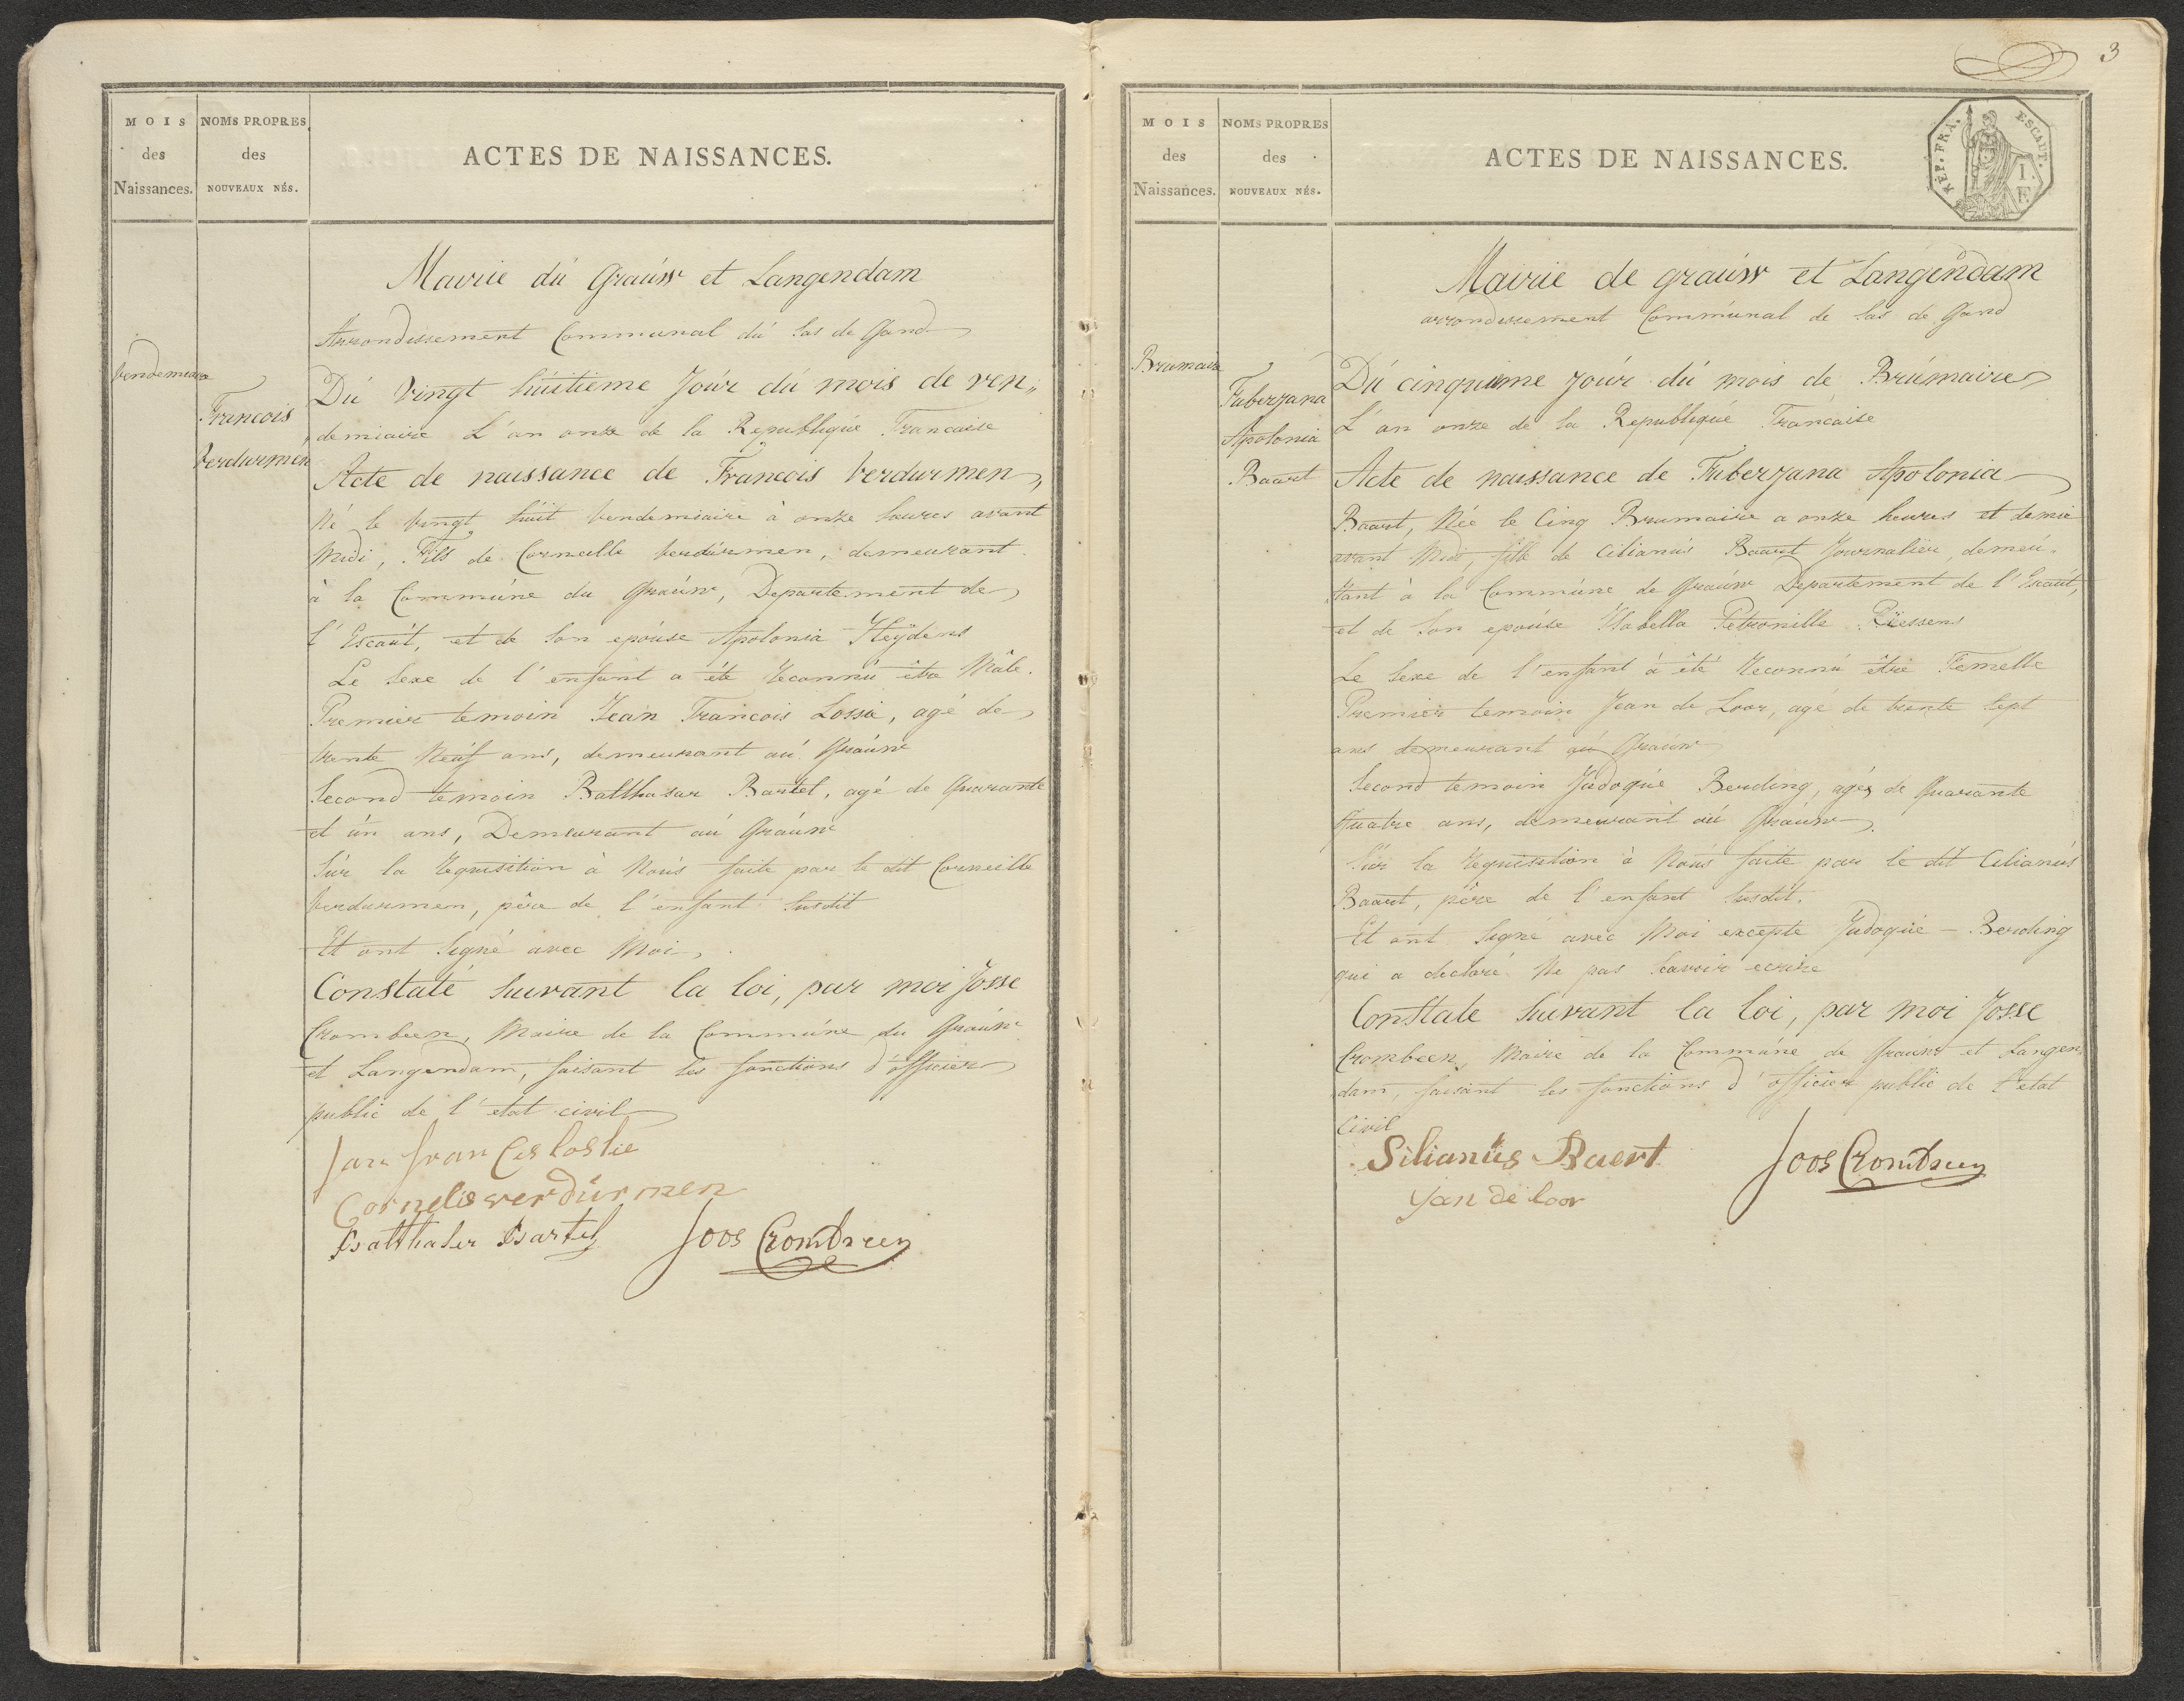 MOIS
des
Naissances.
NOMS PROPRES
des
NOUVEAUX NÉS.
ACTES DE NAISSANCES.
Mairie dú Graúw et Langendam
Arrondissement Communal dú Sas de Gand
Vendemiaire
Francois
Verdurmen
Dú Vingt húitieme Joúr dú mois de ven„
demiaire L'an onze de la Republiqúe Francaise
Acte de naissance de Francois Verdurmen,
Né le Vingt húit Vendemiaire à onze heures avant
Midi, Fils de Corneille Verdúrmen, demeurant
à la Commúne du Graúw, Departement de
l'Escaút, et de Son epoúse Apolonia Heÿdens
Le Sexe de l'enfant a été Reconnú être Mâle.
Premier temoin Jean Francois Lossie, agé de
trente Neúf ans, demeurant aú Graúw
Second temoin Balthasar Bartel, agé de Quarante
et ún ans, Demeurant aú Graúw
Súr la Requisition à Noús faite par le dit Corneille
Verdurmen, père de l'enfant Susdit
Et ont Signé avec Moi,
Constaté Suivant la loi, par moi Josse
Crombeen, Maire de la Commúne du Graúw
et Langendam, faisant les fonctions d'officier
public de l'etat civil
Jan fran Cis losie
Cornelis verdúrmen
Balthaser Bartel
Joos Crombeen
3
MOIS
des
Naissances.
NOMS PROPRES
des
NOUVEAUX NÉS.
ACTES DE NAISSANCES.
RÉP. FRA. ESCAUT.
1. F.
Mairie de graúw et Langendam
arrondissement Commúnal de Sas de Gand
Brumaire
Apolonia
Baart
Dú cinquieme Joúr dú mois de Brúmaire
L'an onze de la Republiqúe Francaise
Acte de naissance de Apolonia
Baart, Née le Cinq Brumaire a onze heures et demie
avant Midi, fille de Cilianús Baart Journalier, demeú„
rant à la Commúne de Graúw Departement de l'Escaút,
et de Son epoúse Isabella Petronille
Le Sexe de l'enfant à été Reconnú être Femelle
Premier temoin Jean de Loor, agé de trente Sept
ans demeurant aú Graúw
Second temoin Júdoqúe Berding, agés de Quarante
Quatre ans, demeurant aú Graúw.
Súr la Requisition à Noús faite par le dit Cilianús
Baart, père de l'enfant Susdit.
Et ont Signé avec Moi excepte Judoqúe - Berding
qui a declaré Ne pas Scavoir ecrire
Constate Suivant la loi, par moi Josse
Crombeen, Maire de la Commúne de Graúw et Langen„
dam, faisant les fonctions d'officier public de l'etat
Civil
Silianús Baert
Joos Crombeen
Jan de loor